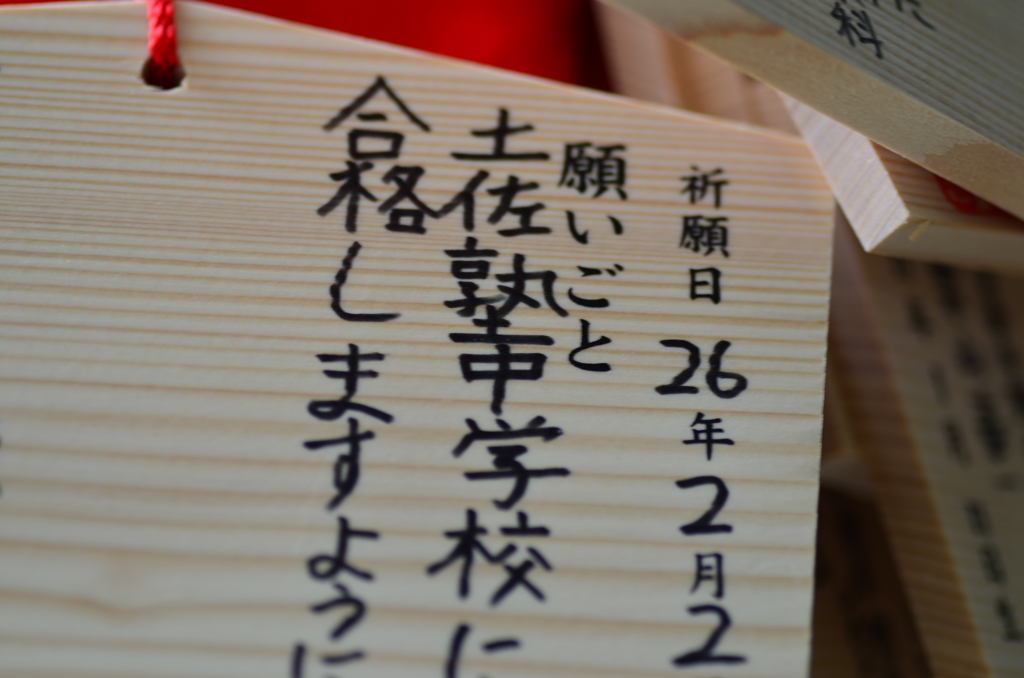 祈願日 26年2月2
願いごと
土佐塾中学校に
合格しますように
科